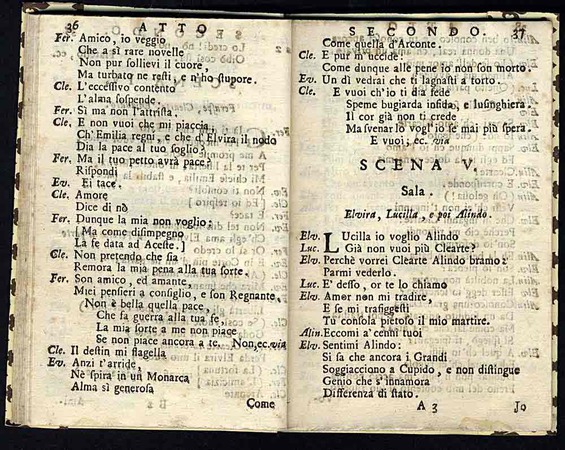 36 ATTO
Fer. Amico, io veggio
Che a sì rare novelle
Non pur sollievi il cuore,
Ma turbato ne resti, e n'ho stupore.
Cle. L'eccessivo contento
L'alma sospende.
Fer. Sì ma non l'attrista.
Cle. E non vuoi che mi piaccia,
Ch'Emilia regni, e che d'Elvira il nodo
Dia la pace al tuo soglio?
Fer. Ma il tuo petto avrà pace?
Rispondi
Ev. Ei tace.
Cle. Amore
Dice di nò
Fer. Dunque la mia non voglio:
[Ma come disimpegno
La fe data ad Aceste.]
Cle. Non pretendo che sia
Remora la mia pena alla tua sorte.
Fer. Son amico, ed amante,
Miei pensieri a consiglio, e son Regnante,
Non è bella quella pace,
Che fa guerra alla tua fe,
La mia sorte a me non piace
Se non piace ancora a te. Non, ec. via
Cle. Il destin mi flagella
Ev. Anzi t'arride,
Ne spira in un Monarca
Alma sì generosa
Come
SECONDO. 37
Come quella d'Arconte.
Cle. E pur m'uccide:
Come dunque alle pene io non son morto.
Ev. Un dì vedrai che ti lagnasti a torto.
Cle. E vuoi ch'io ti dia fede
Speme bugiarda infida, e lusinghiera.
Il cor già non ti crede
Ma svenar lo vogl'io se mai più spera.
E vuoi, ec. via
SCENA V.
Sala.
Elvira, Lucilla, e poi Alindo.
Elv. Lucilla io voglio Alindo
Luc. Già non vuoi più Clearte?
Elv. Perchè vorrei Clearte Alindo bramo:
Parmi vederlo.
Luc. E' desso, or te lo chiamo
Elv. Amor non mi tradire,
E se mi trafiggesti
Tu consola pietoso il mio martire.
Alin. Eccomi a' cenni tuoi
Elv. Sentimi Alindo:
Si sa che ancora i Grandi
Soggiacciono a Cupido, e non distingue
Genio che s'innamora
Differenza di stato.
A 3 Io